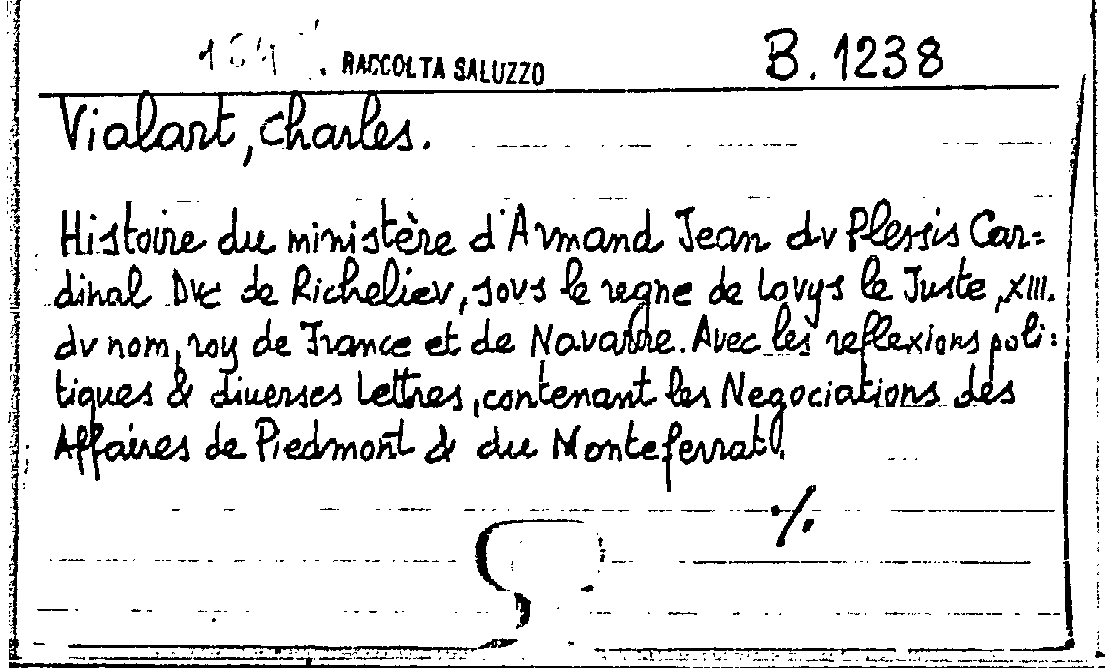 RACCOLTA SALUZZO B. 1238
Vialart, Charles.
Histoire du ministère d'Armand Jean dv Plessis Car=
dinal Dvc de Richeliev, sovs le regne de Lovys le Juste, XIII.
dv nom, roy de France et de Navarre. Avec les reflexions poli=
tiques & diverses Lettres, contenant les Negociations des
Affaires de Piedmont & du Monteferrat.
./.